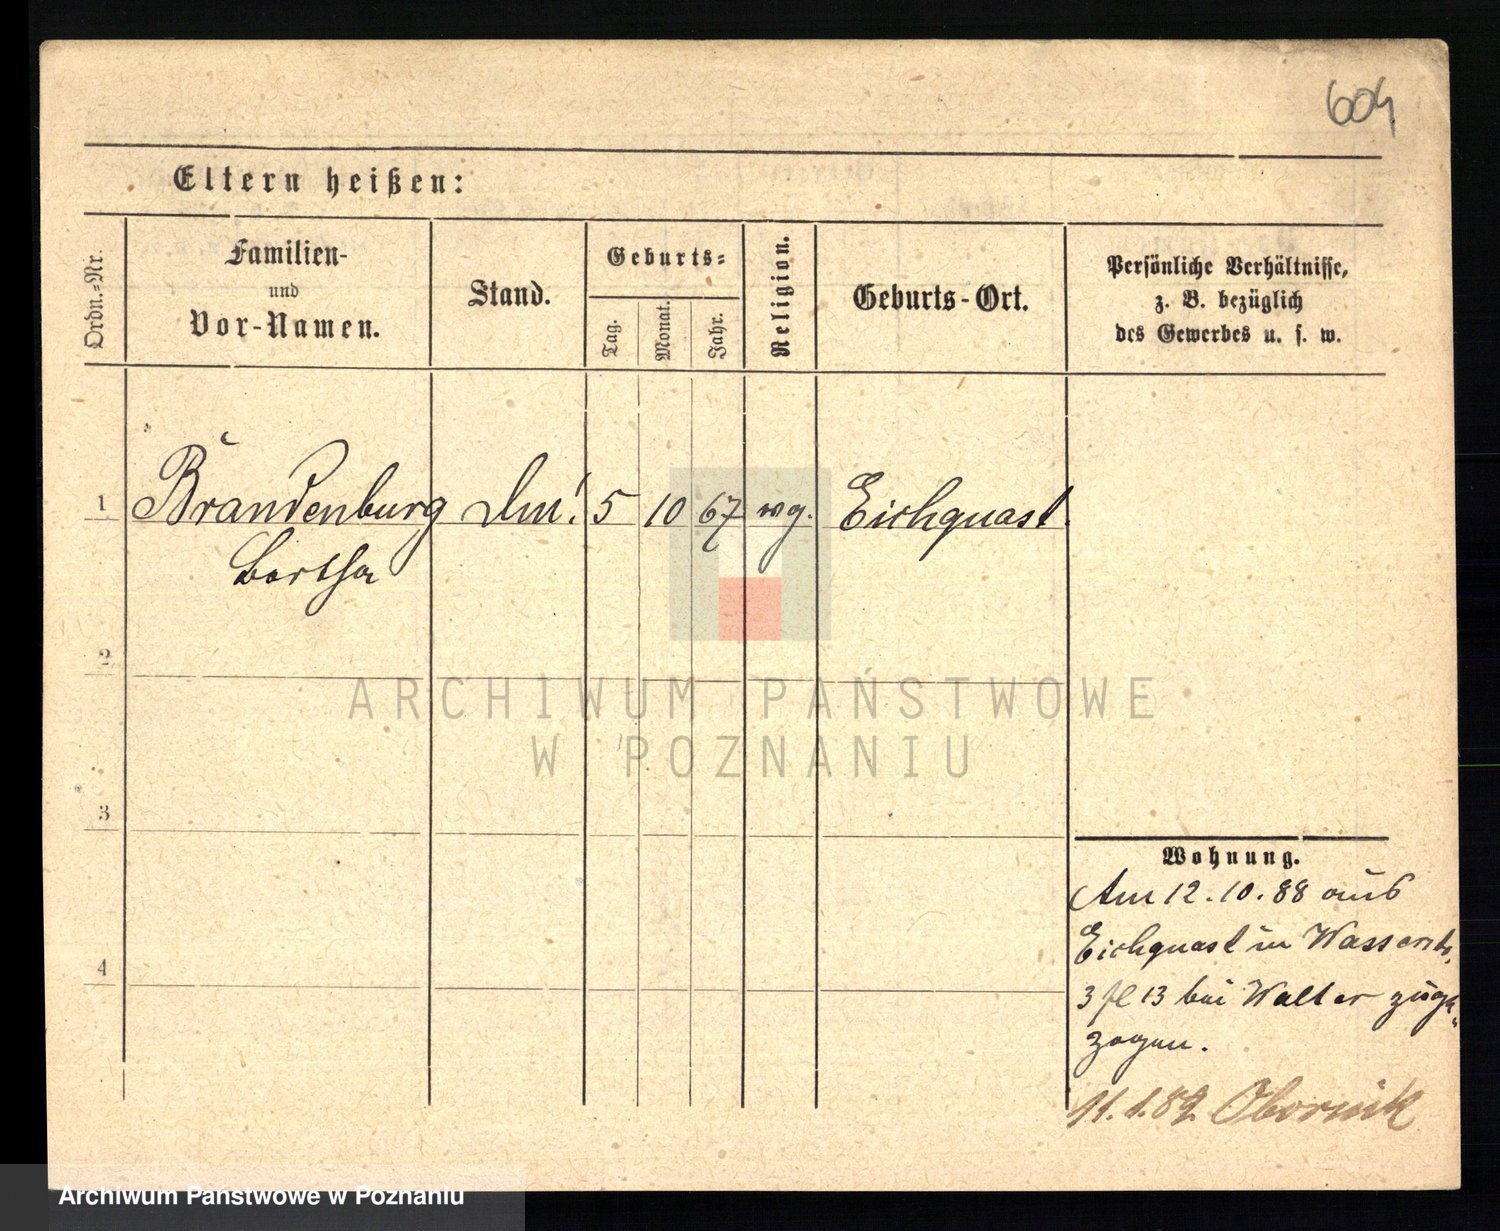 604
Eltern heißen:
Ordn.-Nr.
Familien-
und
Vor-Namen.
Stand.
Geburts-
Tag.
Monat.
Jahr.
Religion.
Geburts-Ort.
Persönliche Verhältnisse,
z. B. bezüglich
des Gewerbes u. s. w.
1 Brandenburg 5 10 67 Eichquast.
Bertha
2
3
4
ARCHIWUM PAŃSTWOWE
W POZNANIU
Wohnung.
Am 12.10.88 aus
Eichquast in Wasserstr.
3 13 bei Walter zuge-
zogen.
11.1.89 Obornik
Archiwum Państwowe w Poznaniu